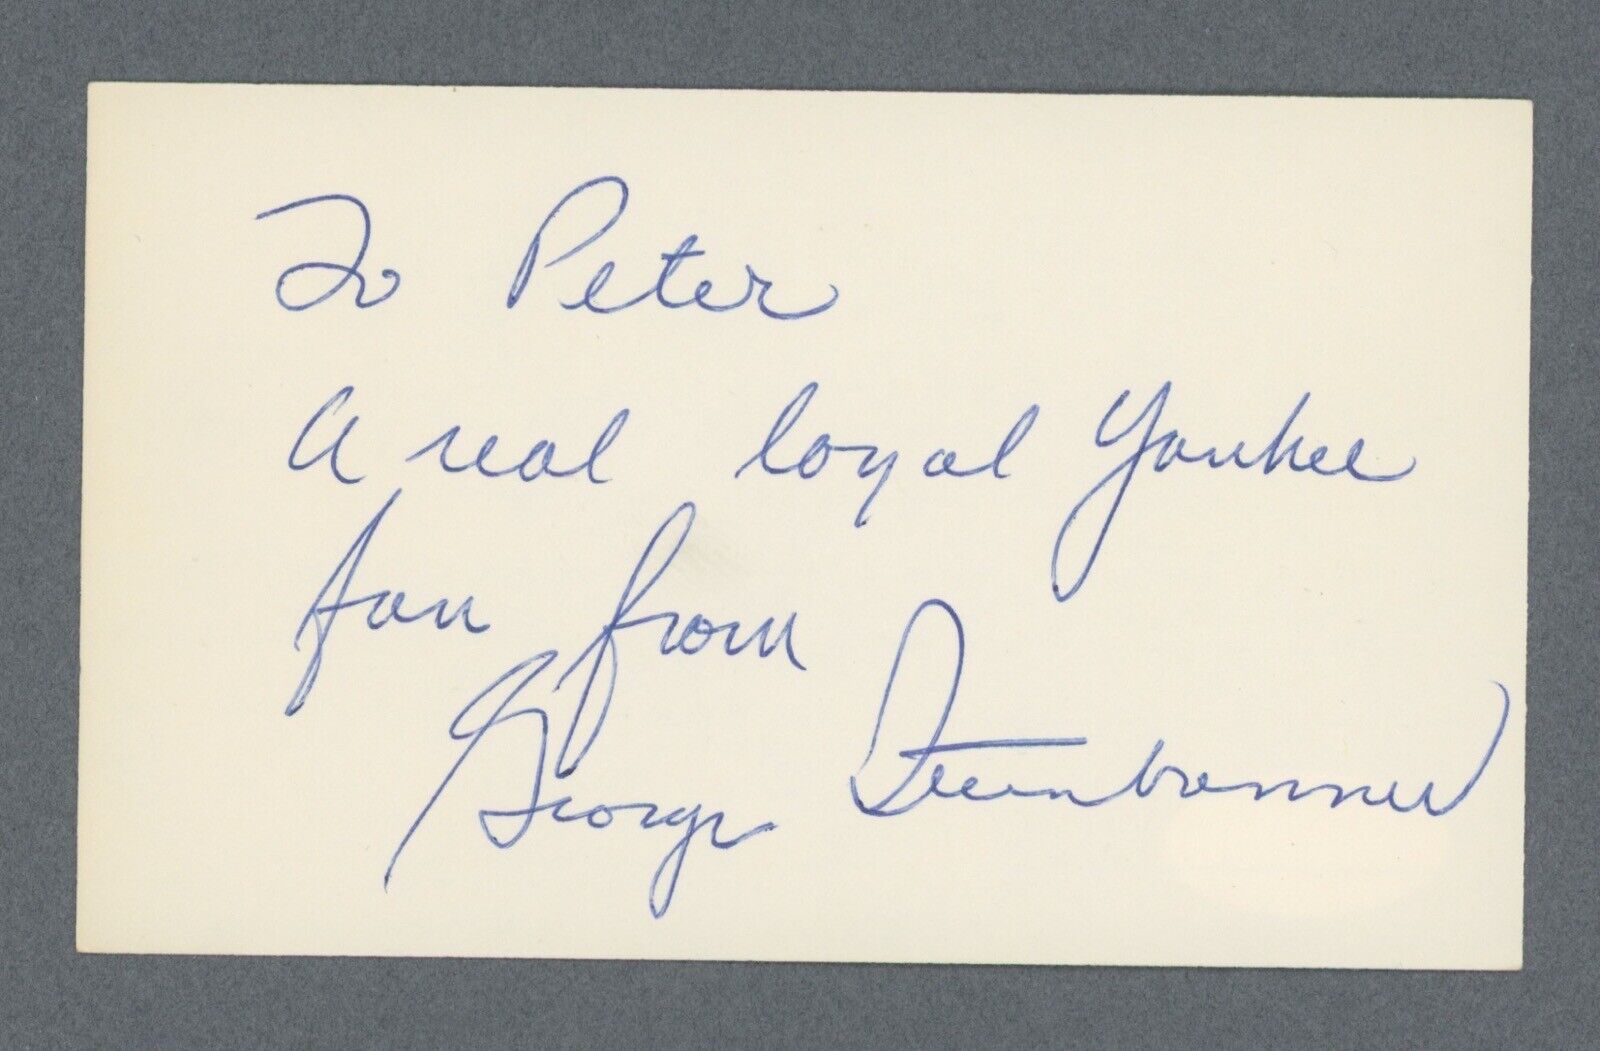 To Peter
A real loyal Yankee
fan from
George Steinbrenner